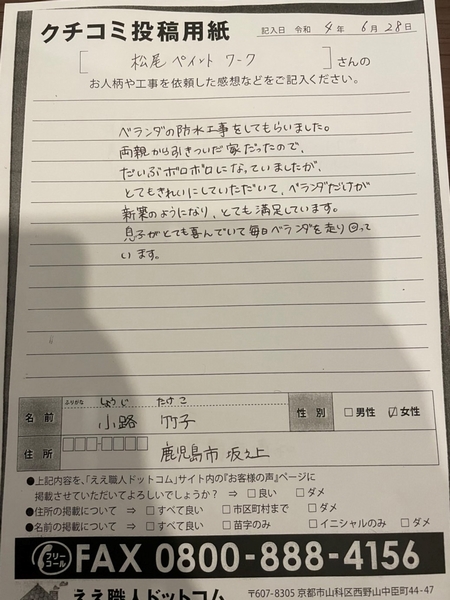 クチコミ投稿用紙
記入日 令和 4年 6月 28日
[ 松尾ペイントワーク ] さんの
お人柄や工事を依頼した感想などをご記入ください。
ベランダの防水工事をしてもらいました。
両親から引きついだ家だったので、
だいぶボロボロになっていましたが、
とてもきれいにしていただいて、ベランダだけが
新築のようになり、とても満足しています。
息子がとても喜んでいて毎日ベランダを走り回って
います。
ふりがな しょうじ たけこ
名前 小路 竹子
性別 □男性 ☑女性
住所 □□□-□□□□ 鹿児島市 坂之上
●上記内容を、「ええ職人ドットコム」サイト内の『お客様の声』ページに
掲載させていただいてよろしいでしょうか? ⇒ □良い □ダメ
●住所の掲載について ⇒ □すべて良い □市区町村まで □ダメ
●名前の掲載について ⇒ □すべて良い □苗字のみ □イニシャルのみ □ダメ
フリーコール FAX 0800-888-4156
ええ職人ドットコム 〒607-8305 京都市山科区西野山中臣町44-47